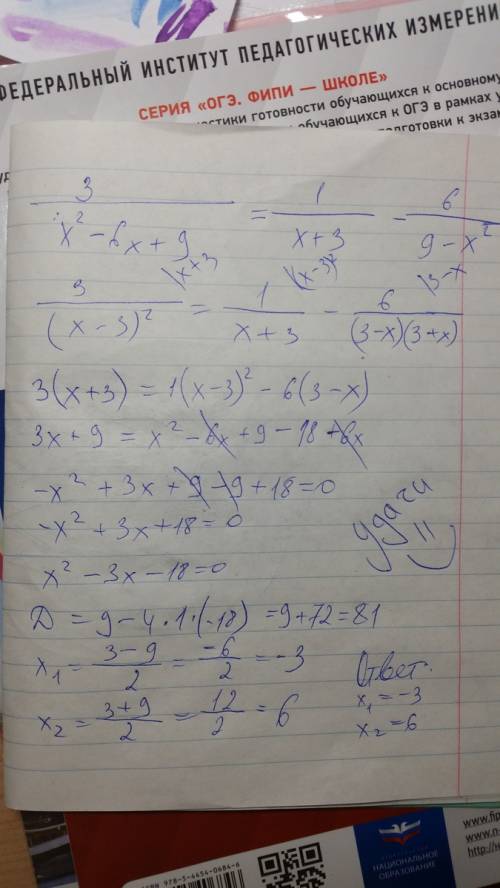 ФЕДЕРАЛЬНЫЙ ИНСТИТУТ ПЕДАГОГИЧЕСКИХ ИЗМЕРЕНИ
СЕРИЯ «ОГЭ. ФИПИ — ШКОЛЕ»
стики готовности обучающихся к основному
обучающихся к ОГЭ в рамках у
подготовки к экза
3/(x² - 6x + 9) = 1/(x + 3) - 6/(9 - x²)
3/(x - 3)² \x+3 = 1/(x + 3) \(x-3)² - 6/((3-x)(3+x)) \3-x
3(x+3) = 1(x-3)² - 6(3-x)
3x + 9 = x² - 6x + 9 - 18 + 6x
-x² + 3x + 9 - 9 + 18 = 0
-x² + 3x + 18 = 0
x² - 3x - 18 = 0
удачи =)
D = 9 - 4·1·(-18) = 9 + 72 = 81
x₁ = (3-9)/2 = -6/2 = -3
x₂ = (3+9)/2 = 12/2 = 6
Ответ:
x₁ = -3
x₂ = 6
ISBN 978-5-4454-0684-6
НАЦИОНАЛЬНОЕ
ОБРАЗОВАНИЕ
www.fip
www.n
http://н